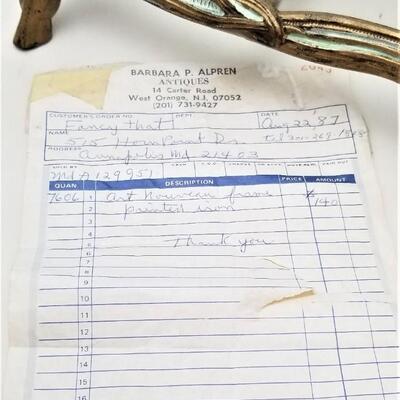 BARBARA P. ALPREN
ANTIQUES
14 Carter Road
West Orange, N.J. 07052
(201) 731-9427
CUSTOMER'S ORDER NO. DEPT. DATE
Fancy That Aug 22 87
NAME 15 Horn Point Dr.
ADDRESS Annapolis Md 21403
SOLD BY
Md # 129951
QUAN. DESCRIPTION PRICE AMOUNT
7606 1 Art Nouveau frame
2 painted iron 140
3
4
5 Thank you
6
7
8
9
10
11
12
13
14
15
16